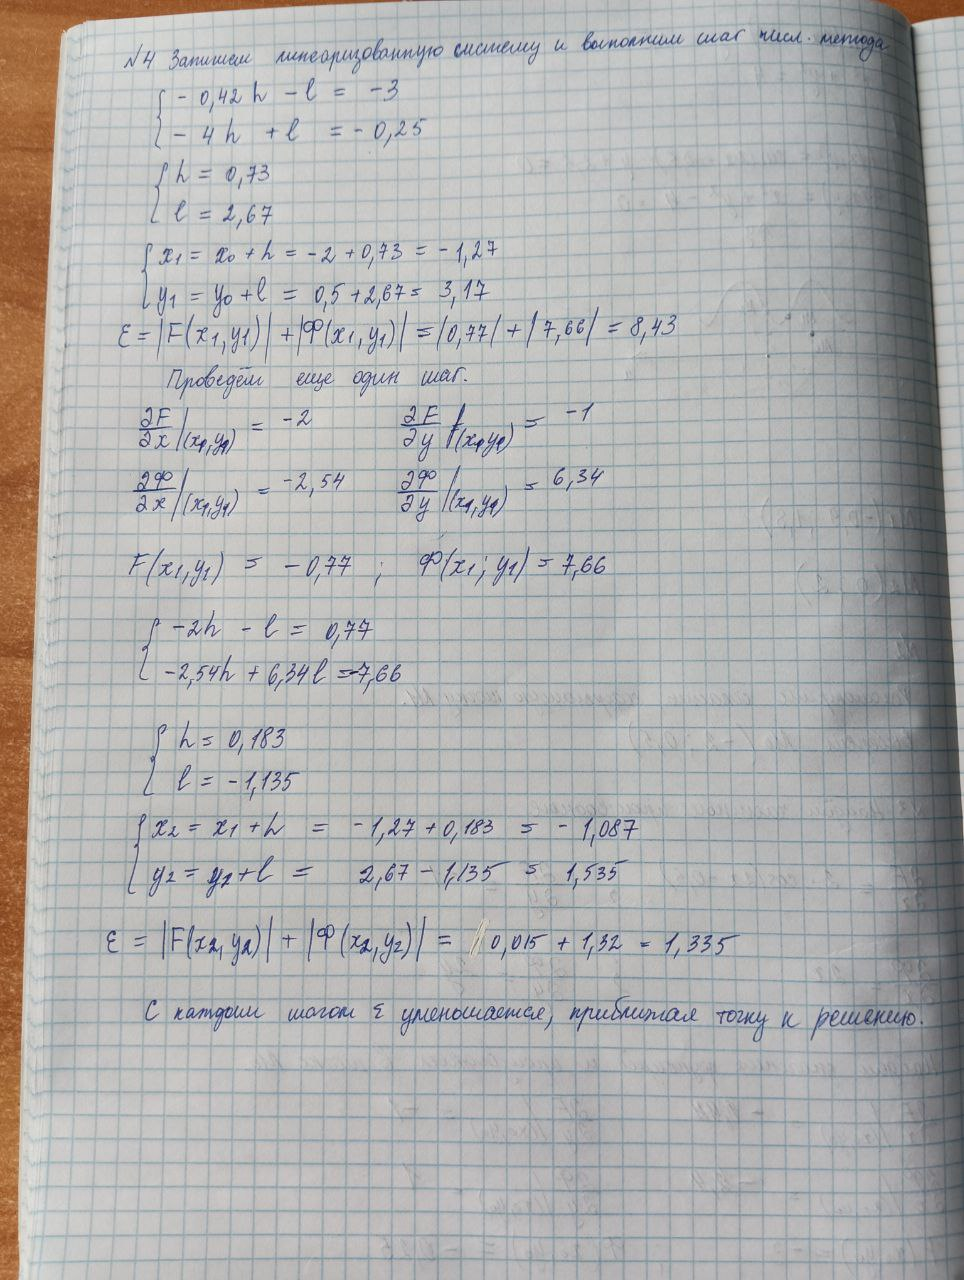 №4 Запишем линеаризованную систему и выполним шаг числ. метода
{ - 0,42h - l = -3
- 4h + l = - 0,25
{ h = 0,73
l = 2,67
{ x₁ = x₀ + h = -2 + 0,73 = -1,27
y₁ = y₀ + l = 0,5 + 2,67 = 3,17
ε = |F(x₁,y₁)| + |Ф(x₁,y₁)| = |0,77| + |7,66| = 8,43
Проведём еще один шаг.
∂F/∂x |(x₁,y₁) = -2 ∂F/∂y |(x₁,y₁) = -1
∂Ф/∂x |(x₁,y₁) = -2,54 ∂Ф/∂y |(x₁,y₁) = 6,34
F(x₁,y₁) = -0,77 ; Ф(x₁; y₁) = 7,66
{ -2h - l = 0,77
-2,54h + 6,34l = -7,66
{ h = 0,183
l = -1,135
{ x₂ = x₁ + h = -1,27 + 0,183 = -1,087
y₂ = y₂ + l = 2,67 - 1,135 = 1,535
ε = |F(x₂,y₂)| + |Ф(x₂,y₂)| = 0,015 + 1,32 = 1,335
С каждым шагом ε уменьшается, приближая точку к решению.